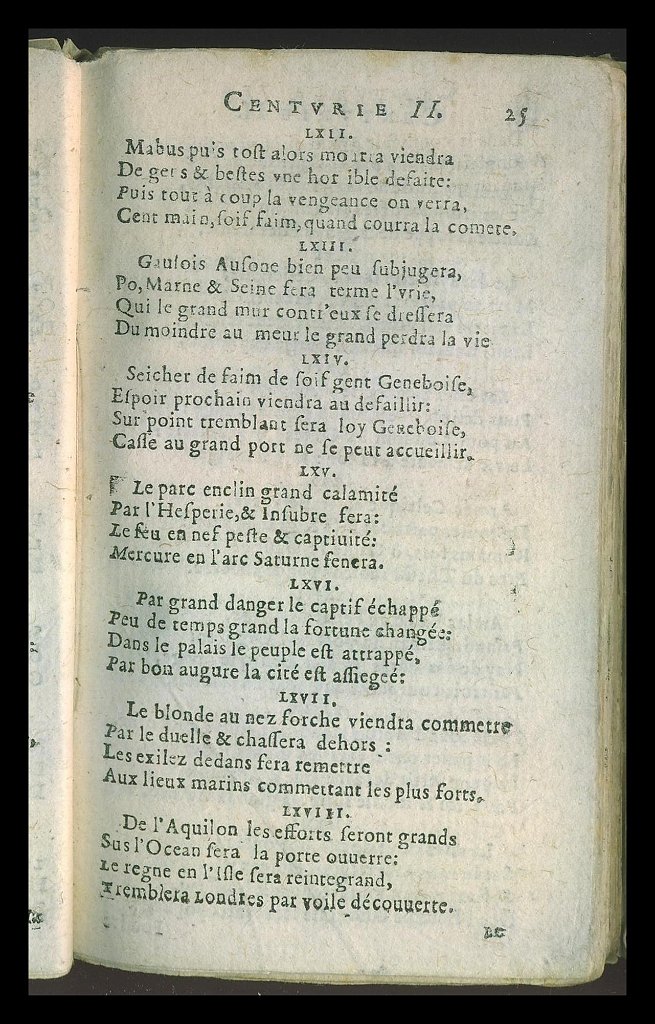 CENTVRIE II. 25
LXII.
Mabus puis tost alors mourra viendra
De gens & bestes vne horrible defaite:
Puis tout à coup la vengeance on verra,
Cent main, soif, faim, quand courra la comete.
LXIII.
Gaulois Ausone bien peu subjugera,
Po, Marne & Seine fera Perme l'vrie,
Qui le grand mur contr'eux se dressera
Du moindre au meur le grand perdra la vie
LXIV.
Seicher de faim de soif gent Geneboise,
Espoir prochain viendra au defaillir:
Sur point tremblant sera loy Geneboise,
Casse au grand port ne se peut accueillir.
LXV.
Le parc enclin grand calamité
Par l'Hesperie, & Insubre fera:
Le feu en nef peste & captiuité:
Mercure en l'arc Saturne fenera.
LXVI.
Par grand danger le captif échappé
Peu de temps grand la fortune changée:
Dans le palais le peuple est attrappé,
Par bon augure la cité est assiegeé:
LXVII.
Le blonde au nez forche viendra commettre
Par le duelle & chassera dehors :
Les exilez dedans fera remettre
Aux lieux marins commettant les plus forts.
LXVIII.
De l'Aquilon les efforts seront grands
Sus l'Ocean sera la porte ouuerre:
Le regne en l'Isle sera reintegrand,
Tremblera Londres par voile découuerte.
Le